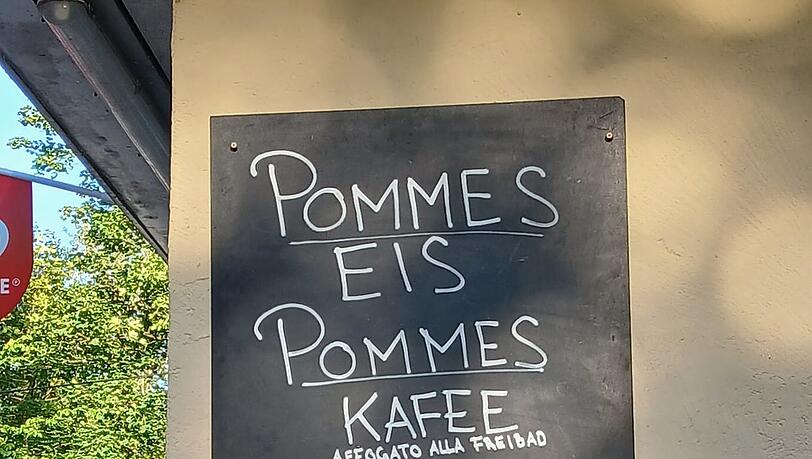 POMMES
EIS
POMMES
KAFEE
AFFOGATO ALLA FREIBAD